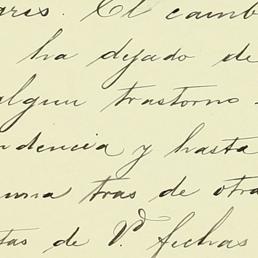 aris. El camb
ha dejado de
algun trastorno
ndencia y hasta
una tras de otra
tas de Vd. fechas